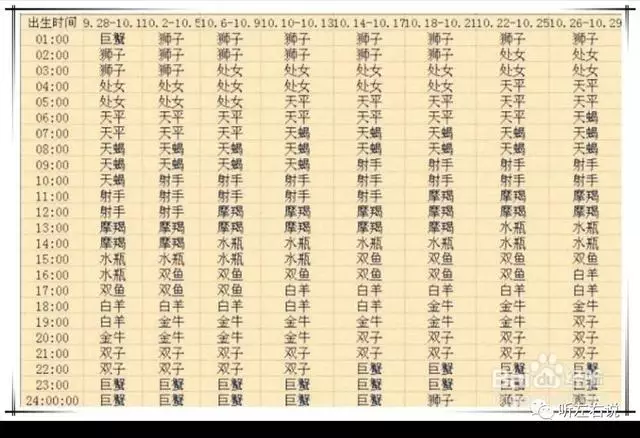 出生时间 9.28-10.1 10.2-10.5 10.6-10.9 10.10-10.13 10.14-10.17 10.18-10.21 10.22-10.25 10.26-10.29
01:00 巨蟹 狮子 狮子 狮子 狮子 狮子 狮子 狮子
02:00 狮子 狮子 狮子 狮子 狮子 狮子 处女 处女
03:00 狮子 狮子 处女 处女 处女 处女 处女 处女
04:00 处女 处女 处女 处女 处女 处女 天平 天平
05:00 处女 处女 处女 天平 天平 天平 天平 天平
06:00 天平 天平 天平 天平 天平 天平 天平 天蝎
07:00 天平 天平 天平 天蝎 天蝎 天蝎 天蝎 天蝎
08:00 天蝎 天蝎 天蝎 天蝎 天蝎 天蝎 天蝎 天蝎
09:00 天蝎 天蝎 天蝎 天蝎 射手 射手 射手 射手
10:00 天蝎 射手 射手 射手 射手 射手 射手 射手
11:00 射手 射手 射手 射手 射手 摩羯 摩羯 摩羯
12:00 射手 射手 摩羯 摩羯 摩羯 摩羯 摩羯 摩羯
13:00 摩羯 摩羯 摩羯 摩羯 摩羯 摩羯 水瓶 水瓶
14:00 摩羯 摩羯 水瓶 水瓶 水瓶 水瓶 水瓶 水瓶
15:00 水瓶 水瓶 水瓶 水瓶 双鱼 双鱼 双鱼 双鱼
16:00 水瓶 双鱼 双鱼 双鱼 双鱼 双鱼 双鱼 白羊
17:00 双鱼 双鱼 白羊 白羊 白羊 白羊 白羊 白羊
18:00 白羊 白羊 白羊 白羊 白羊 金牛 金牛 金牛
19:00 白羊 金牛 金牛 金牛 金牛 金牛 金牛 双子
20:00 金牛 金牛 金牛 金牛 双子 双子 双子 双子
21:00 双子 双子 双子 双子 双子 双子 双子 双子
22:00 双子 双子 双子 双子 巨蟹 巨蟹 巨蟹 巨蟹
23:00 巨蟹 巨蟹 巨蟹 巨蟹 巨蟹 巨蟹 巨蟹 巨蟹
24:00:00 巨蟹 巨蟹 巨蟹 巨蟹 巨蟹 狮子 狮子 狮子
Baidu 经验
听左右说